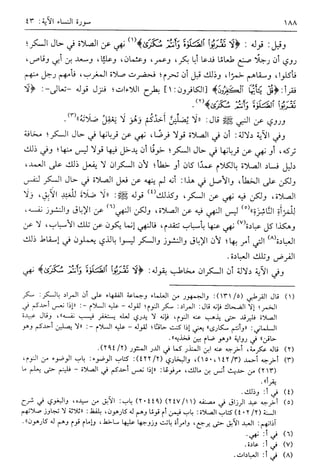 ١٨٨
سورة النساء الآية: ٤٣
وقيل: قوله: ﴿لَا تَقْرَبُوا الصَّلَاةَ وَأَنتُمْ سُكَارَى﴾(١) نهي عن الصلاة في حال السكر؛
روي أن رجلًا صنع طعامًا فدعا أبا بكر، وعمر، وعثمان، وعليًّا، وسعد بن أبي وقاص،
فأكلوا، وسقاهم خمرًا، وذلك قبل أن تحرم؛ فحضرت صلاة المغرب، فأمهم رجل منهم
فقرأ: ﴿قُلْ يَا أَيُّهَا الْكَافِرُونَ﴾ [الكافرون: ١] بطرح اللاءات؛ فنزل قوله -تعالى-: ﴿لَا
تَقْرَبُوا الصَّلَاةَ وَأَنتُمْ سُكَارَى﴾(٢).
وروي عن النبي ﷺ قال: «لَا يُصَلِّيَنَّ أَحَدُكُمْ وَهُوَ لَا يَعْقِلُ صَلَاتَهُ»(٣).
وفي الآية دلالة: أن في الصلاة قولا فرضًا، نهي عن قربانها في حال السكر؛ مخافة
تركه، أو نهي عن قربانها في حال السكر؛ خوفًا أن يدخل فيها قولا ليس منها؛ وفي ذلك
دليل فساد الصلاة بالكلام عمدًا كان أو خطأ؛ لأن السكران لا يفعل ذلك على العمد،
ولكن على الخطأ، والأصل في هذا: أنه لم ينه عن فعل الصلاة في حال السكر لنفس
الصلاة، ولكن فيه نهي عن السكر، وكذلك(٤) قوله ﷺ(٥): «لَا صَلَاةَ لِلْعَبْدِ الْآبِقِ، وَلَا
لِلْمَرْأَةِ النَّاشِزَةِ» ليس النهي فيه عن الصلاة، ولكن النهي(٦) عن الإباق والنشوز نفسه،
وهكذا كل عبادة(٧) نهي عنها بأسباب تتقدم، فالنهي إنما يكون عن تلك الأسباب، لا عن
العبادة(٨) التي أمر بها؛ لأن الإباق والنشوز والسكر ليسوا بالذي يعملون في إسقاط ذلك
الفرض وتلك العبادة.
وفي الآية دلالة أن السكران مخاطب بقوله: ﴿لَا تَقْرَبُوا الصَّلَاةَ وَأَنتُمْ سُكَارَى﴾ نهي
(١) قال القرطبي (١٣١/٥): والجمهور من العلماء وجماعة الفقهاء على أن المراد بالسكر: سكر
الخمر؛ إلا الضحاك فإنه قال: المراد: سكر النوم؛ لقوله - عليه السلام -: «إذا نعس أحدكم في
الصلاة فليرقد حتى يذهب عنه النوم، فإنه لا يدري لعله يستغفر فيسب نفسه»، وقال عبيدة
السلماني: «وأنتم سكارى» يعني إذا كنت حاقنًا؛ لقوله - عليه السلام -: «لا يصلين أحدكم وهو
حاقن» في رواية «وهو ضام بين فخذيه».
(٢) قاله عكرمة، أخرجه عنه ابن المنذر كما في الدر المنثور (٢٩٤/٢).
(٣) أخرجه أحمد (١٤٢/٣، ١٥٠)، والبخاري (٤٢٢/٢) كتاب الوضوء: باب الوضوء من النوم،
(٢١٣) من حديث أنس بن مالك، مرفوعًا: «إذا نعس أحدكم في الصلاة - فلينم حتى يعلم ما
يقرأ».
(٤) في أ: وذلك.
(٥) أخرجه عبد الرزاق في مصنفه (٢٤٧/١١) (٢٠٤٤٩) باب: الآبق من سيده، والبغوي في شرح
السنة (٤٠٢/٢) كتاب الصلاة: باب فيمن أم قومًا وهم له كارهون، بلفظ: «ثلاثة لا تجاوز صلاتهم
آذانهم: العبد الآبق حتى يرجع، وامرأة باتت وزوجها عليها ساخط، وإمام قوم وهم له كارهون».
(٦) في أ: نهي.
(٧) في أ: عادة.
(٨) في أ: العبادات.